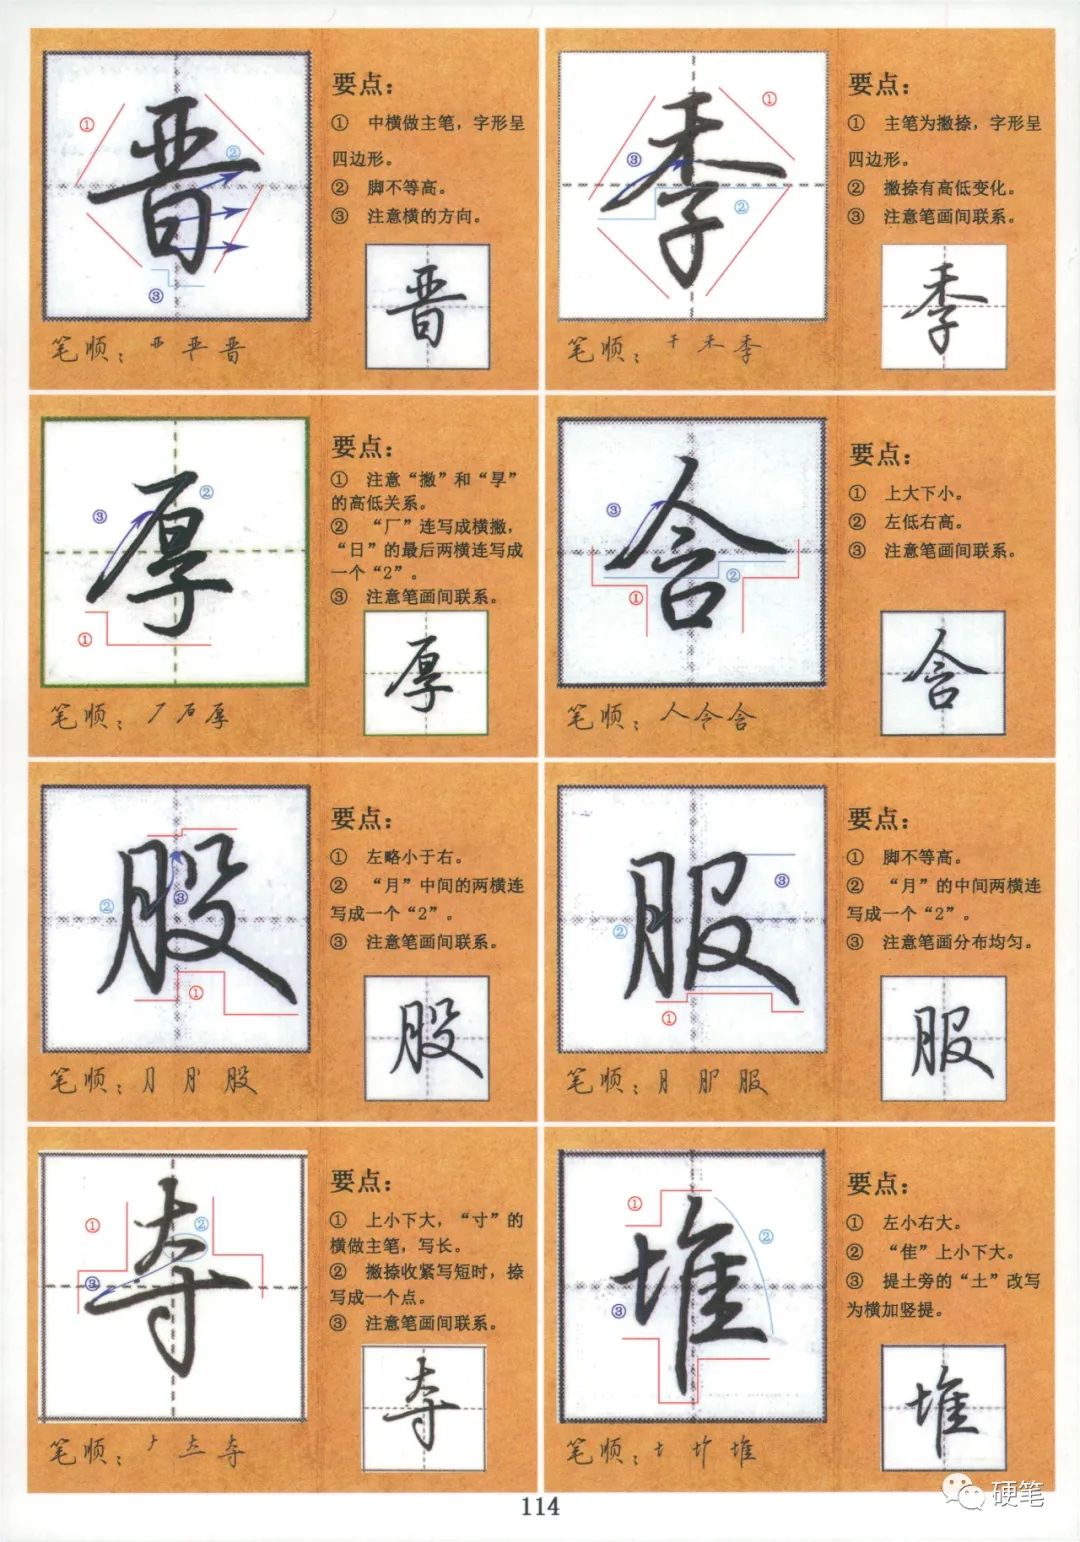 晋
①
②
③
要点：
① 中横做主笔，字形呈
四边形。
② 脚不等高。
③ 注意横的方向。
晋
笔顺：亚  亚 晋
季
①
②
③
要点：
① 主笔为撇捺，字形呈
四边形。
② 撇捺有高低变化。
③ 注意笔画间联系。
季
笔顺：千 禾 季
厚
①
②
③
要点：
① 注意“撇”和“㫗”
的高低关系。
② “厂”连写成横撇，
“日”的最后两横连写成
一个“2”。
③ 注意笔画间联系。
厚
笔顺：厂 厚
含
①
②
③
要点：
① 上大下小。
② 左低右高。
③ 注意笔画间联系。
含
笔顺：人 今 含
股
①
②
③
要点：
① 左略小于右。
② “月”中间的两横连
写成一个“2”。
③ 注意笔画间联系。
股
笔顺：月 股
服
①
②
③
要点：
① 脚不等高。
② “月”的中间两横连
写成一个“2”。
③ 注意笔画分布均匀。
服
笔顺：月 服
夺
①
②
③
要点：
① 上小下大，“寸”的
横做主笔，写长。
② 撇捺收紧写短时，捺
写成一个点。
③ 注意笔画间联系。
夺
笔顺：夺
堆
①
②
③
要点：
① 左小右大。
② “隹”上小下大。
③ 提土旁的“土”改写
为横加竖提。
堆
笔顺：堆
114
硬笔